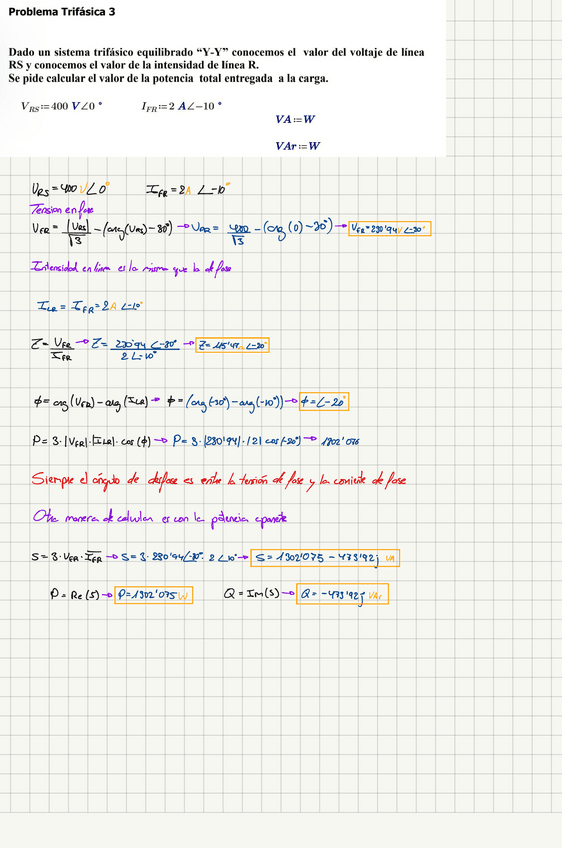 Problema Trifásica 3
Dado un sistema trifásico equilibrado “Y-Y” conocemos el valor del voltaje de línea
RS y conocemos el valor de la intensidad de línea R.
Se pide calcular el valor de la potencia total entregada a la carga.
V_RS := 400 V∠0 ° I_FR := 2 A∠-10 °
VA := W
VAr := W
U_RS = 400 V∠0° I_FR = 2A ∠-10°
Tension en fase
U_FR = |U_RS|/√3 - (arg(U_RS) - 30°) → U_FR = 400/√3 - (arg(0) - 30°) → U_FR = 230'94 V∠-30°
Intensidad en linea es la misma que la de fase
I_LR = I_FR = 2A ∠-10°
Z = U_FR/I_FR → Z = 230'94 ∠-30°/2 ∠-10° → Z = 115'47 Ω ∠-20°
ϕ = arg(U_FR) - arg(I_LR) → ϕ = (arg(-30°) - arg(-10°)) → ϕ = ∠-20°
P = 3·|U_FR|·|I_LR|·cos(ϕ) → P = 3·|230'94|·|2| cos(-20°) → 1302'076
Siempre el ángulo de desfase es entre la tensión de fase y la corriente de fase
Otra manera de calcular es con la potencia aparente
S = 3·U_FR·I̅_FR → S = 3·230'94∠-30°·2∠10° → S = 1302'075 - 473'92j VA
P = Re(S) → P = 1302'075 W Q = Im(S) → Q = -473'92j VAr